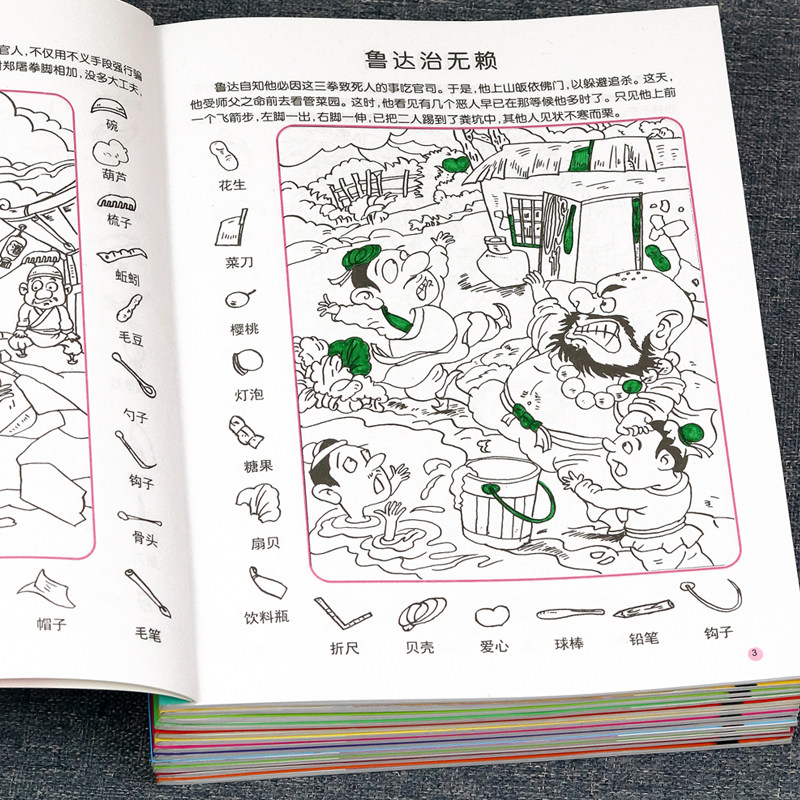 官人，不仅用不义手段强行骗
郑屠拳脚相加，没多大工夫，
碗
葫芦
梳子
蚯蚓
毛豆
勺子
钩子
骨头
帽子
毛笔
鲁达治无赖
鲁达自知他必因这三拳致死人的事吃官司。于是，他上山皈依佛门，以躲避追杀。这天，
他受师父之命前去看管菜园。这时，他看见有几个恶人早已在那等候他多时了。只见他上前
一个飞箭步，左脚一出，右脚一伸，已把二人踢到了粪坑中，其他人见状不寒而栗。
花生
菜刀
樱桃
灯泡
糖果
扇贝
饮料瓶
折尺
贝壳
爱心
球棒
铅笔
钩子
3